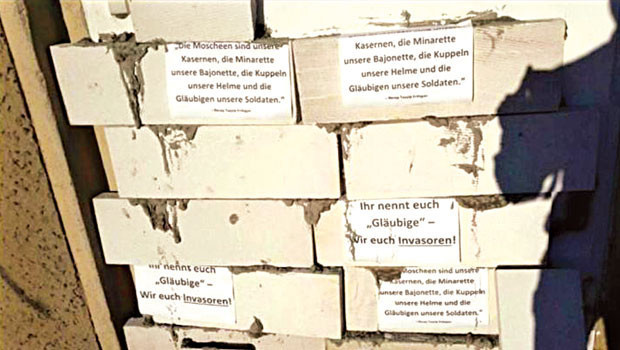 „Die Moscheen sind unsere
Kasernen, die Minarette
unsere Bajonette, die Kuppeln
unsere Helme und die
Gläubigen unsere Soldaten."
Kasernen, die Minarette
unsere Bajonette, die Kuppeln
unsere Helme und die
Gläubigen unsere Soldaten."
Ihr nennt euch
„Gläubige" –
Wir euch Invasoren!
Ihr nennt euch
„Gläubige" –
Wir euch Invasoren!
Moscheen sind unsere
Kasernen, die Minarette
unsere Bajonette, die Kuppeln
unsere Helme und die
Gläubigen unsere Soldaten."